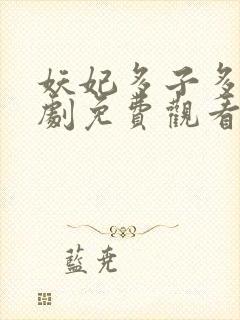 妖妃多子多
劇免費觀看
藍堯